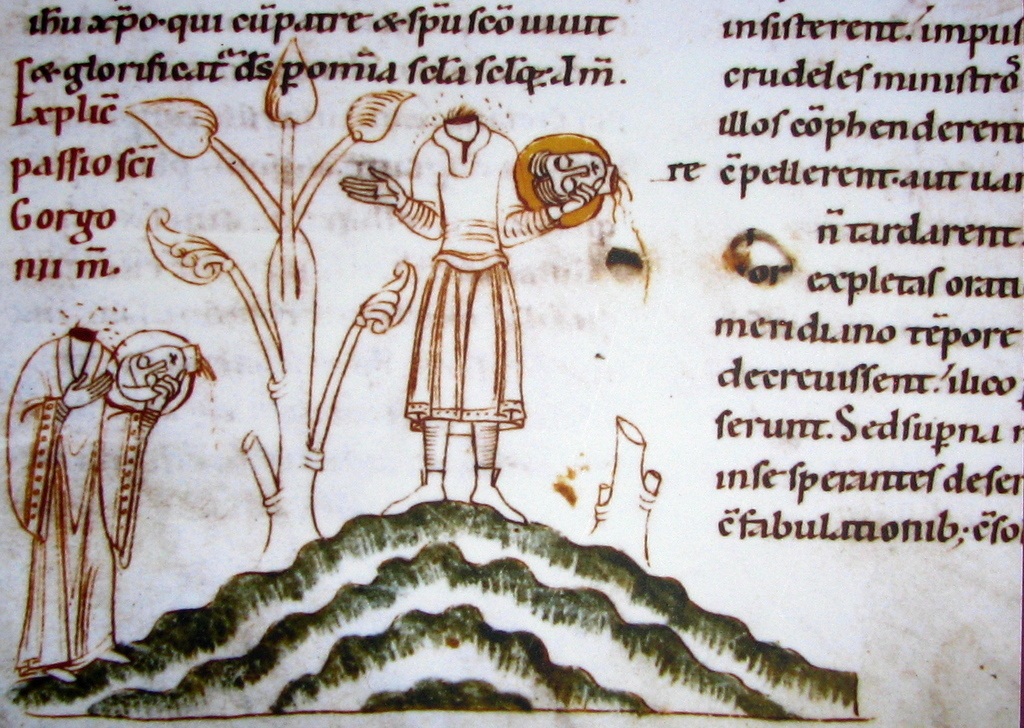 ihu xp̄o· qui cū patre & spū scō uiuit
& glorificat᷑ ds̄ p om̄ia sc̄la sc̄lo⁊. Am̄.
Explic̄
passio sc̄i
Gorgo
nii m̄.
insisterent. impus
crudeles ministrō
illos cōphenderent
re c̄pellerent. aut uar
n̄ tardarent.
or expletas orati
meridiano tēpore
decreuissent. ilico
serunt. Sed sup̄na
inse sperantes deser
c̄fabulationib; c̄so